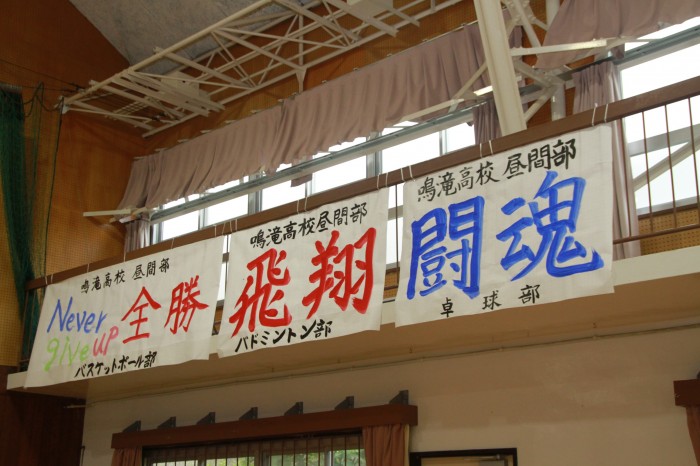 鳴滝高校 昼間部
Never
give up
全勝
バスケットボール部
鳴滝高校昼間部
飛翔
バドミントン部
鳴滝高校 昼間部
闘魂
卓球部